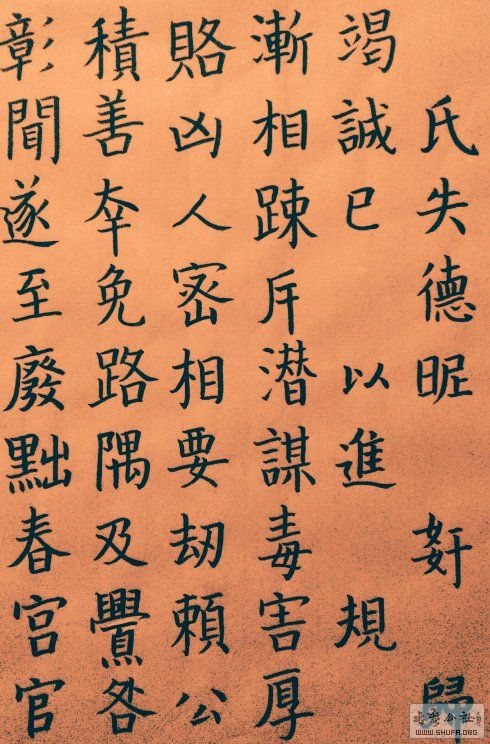 氏失德昵 奸 歸
竭誠已 以進 規
漸相踈斥潜謀毒害厚
賂凶人宻相要劫賴公
積善卒免路隅及咎
彰聞遂至廢黜春宮官
WWW.SHUFA.ORG